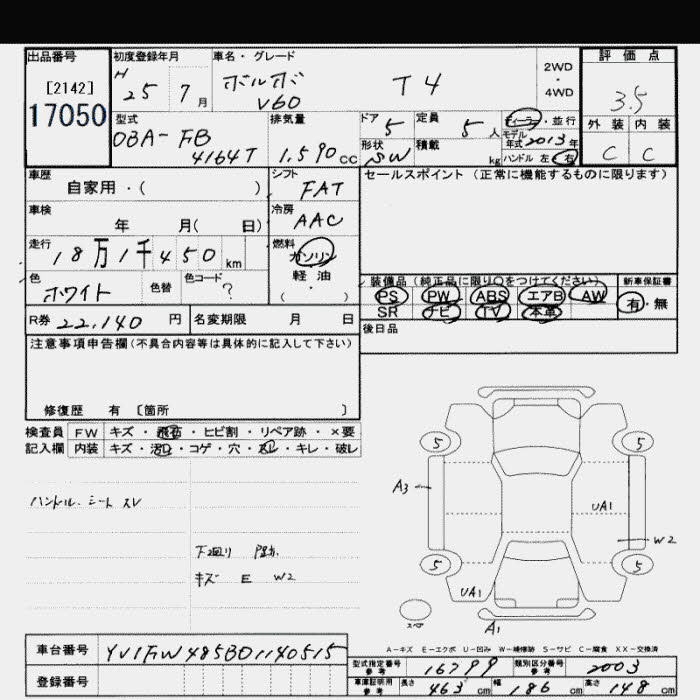 出品番号 初度登録年月 車名・グレード 評価点
[2142] H 25 7月 ボルボ V60 T4 2WD・4WD 3.5
17050 型式 排気量 ドア 5 定員 5人 ディーラー・並行 外装 内装
DBA-FB 4164T 1,590cc 形状 SW 積載 kg モデル年式 2013年 ハンドル 左 右 C C
車歴 シフト セールスポイント(正常に機能するものに限ります)
自家用・( ) FAT
車検 冷房
年 月( 日) AAC
走行 燃料
18万1千450km ガソリン
色 色替 色コード 軽油 装備品(純正品に限り○をつけてください) 新車保証書
ホワイト ? ( ・ ) PS PW ABS エアB AW 有・無
R券 22,140円 名変期限 月 日 SR ナビ TV 本革
注意事項申告欄(不具合内容等は具体的に記入して下さい) 後日品
修復歴 有 〔箇所 〕
検査員 FW キズ・飛石・ヒビ割・リペア跡・×要
記入欄 内装 キズ・汚れ・コゲ・穴・スレ・キレ・破レ
5 5
A3
ハンドル.シート スレ UA1
W2
下廻り
キズ E W2 5 5
UA1
スペア A1
A-キズ E-エクボ U-凹み W-補修跡 S-サビ C-腐食 XX-交換済
車台番号 YV1FW485BD1140515 型式指定番号 参考 16799 類別区分番号 参考 2003
登録番号 車庫証明用 参考 長さ 463cm 幅 186cm 高さ 148cm